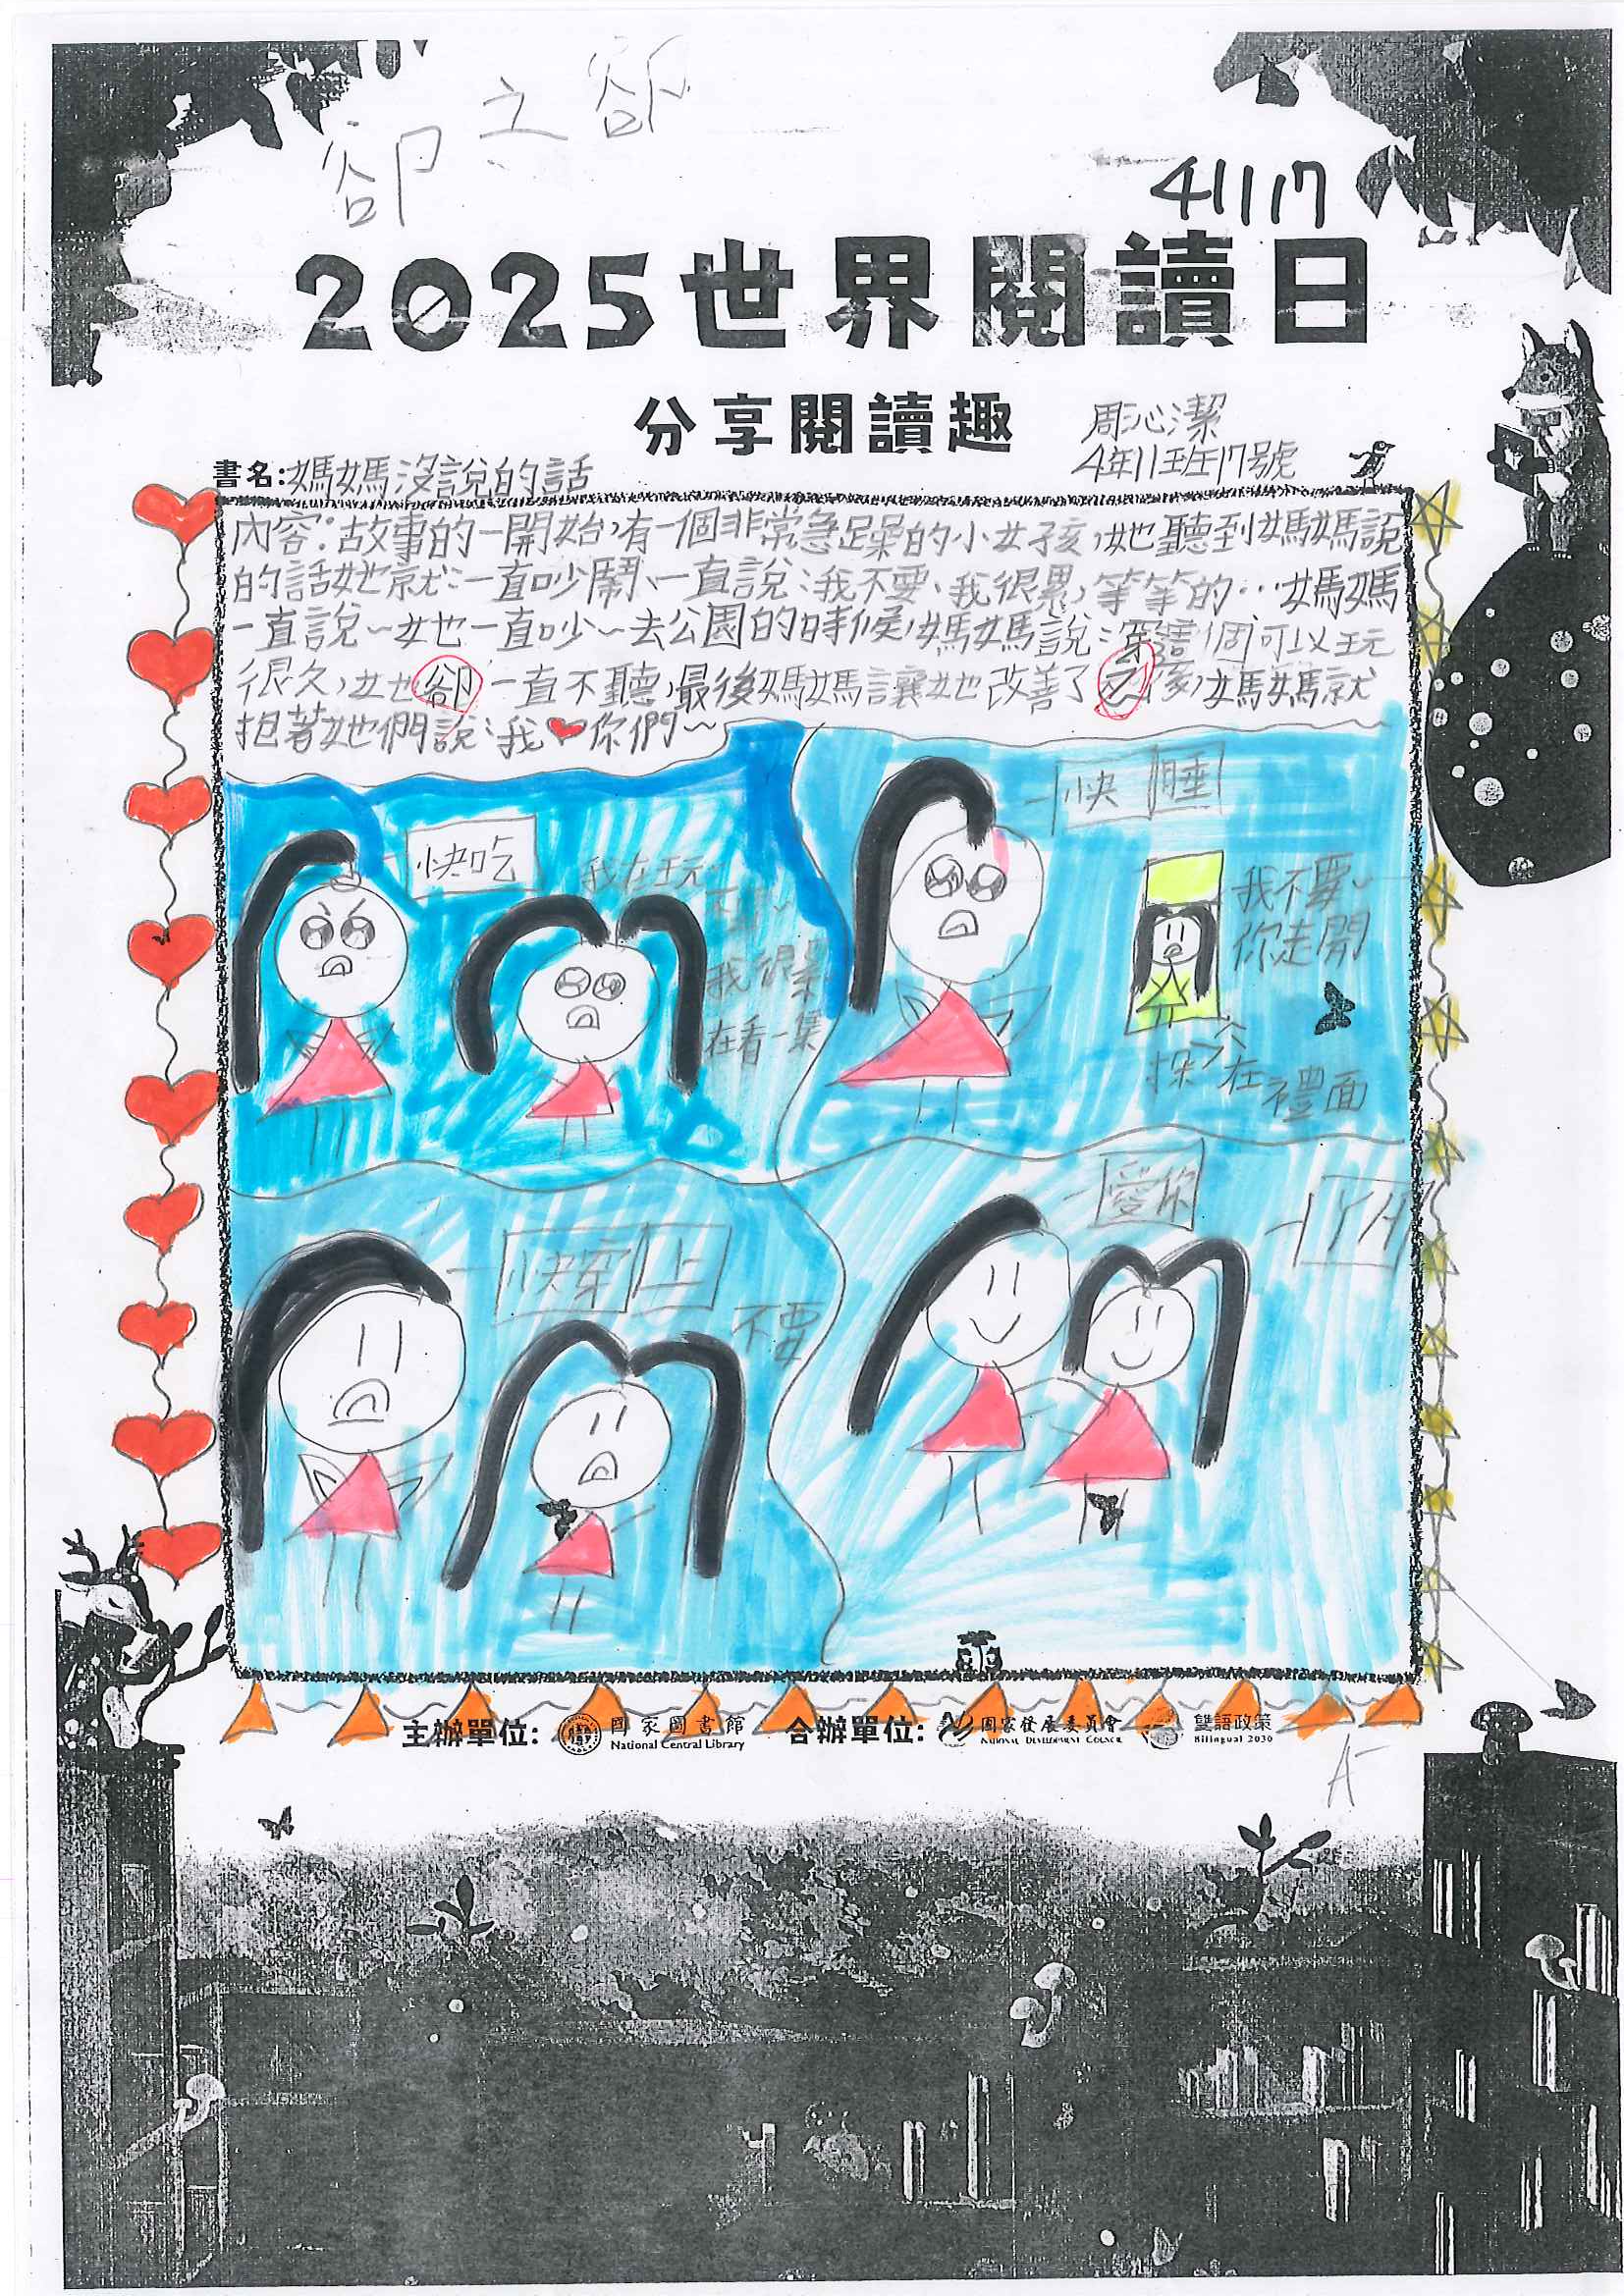 卻 之 卻
41117
2025世界閱讀日
分享閱讀趣
周沁潔
4年11班17號
書名:媽媽沒說的話
內容:故事的一開始,有一個非常急躁的小女孩,她聽到媽媽說
的話她就:一直吵鬧、一直說:我不要、我很累,等等的…媽媽
一直說~她一直吵~去公園的時候,媽媽說:這個可以玩
很久,她卻一直不聽,最後媽媽讓她改善了之後,媽媽就
抱著她們說:我❤你們~
快吃
我在玩
我很累
在看一集
快睡
我不要~
你走開
探穴在禮面
快穿上
不要
愛你
主辦單位: 國家圖書館 National Central Library 合辦單位: 國家發展委員會 National Development Council 雙語政策 Bilingual 2030
A-